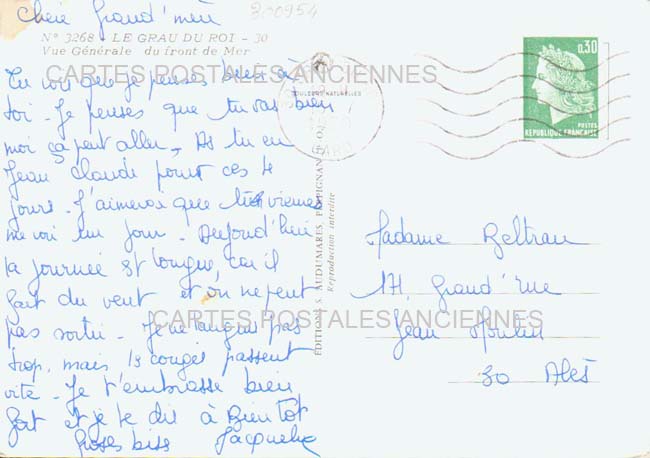 Chere Grand'mère
300954
N° 3268 - LE GRAU DU ROI - 30
Vue Générale du front de Mer
Tu vois que je penses bien à
toi - Je penses que tu vas bien
moi ça peut aller, As tu eu
Jean claude pour ces 4
jours - J'aimerai que tu viennes
me voir un jour - Aujourd'hui
la journée est longue, car il
fait du vent et on ne peut
pas sortir - Je ne langui pas
trop, mais ls congés passent
vite - Je t'embrasse bien
fort et je te dis à Bientot
Grosses biss Jacqueline
COULEURS NATURELLES
GARD
0,30
POSTES
REPUBLIQUE FRANÇAISE
EDITIONS S. AUDUMARES PERPIGNAN
Reproduction interdite
Madame Beltran
17, Grand'rue
Jean Moulin
30 Alès
CARTES POSTALES ANCIENNES
CARTES POSTALES ANCIENNES